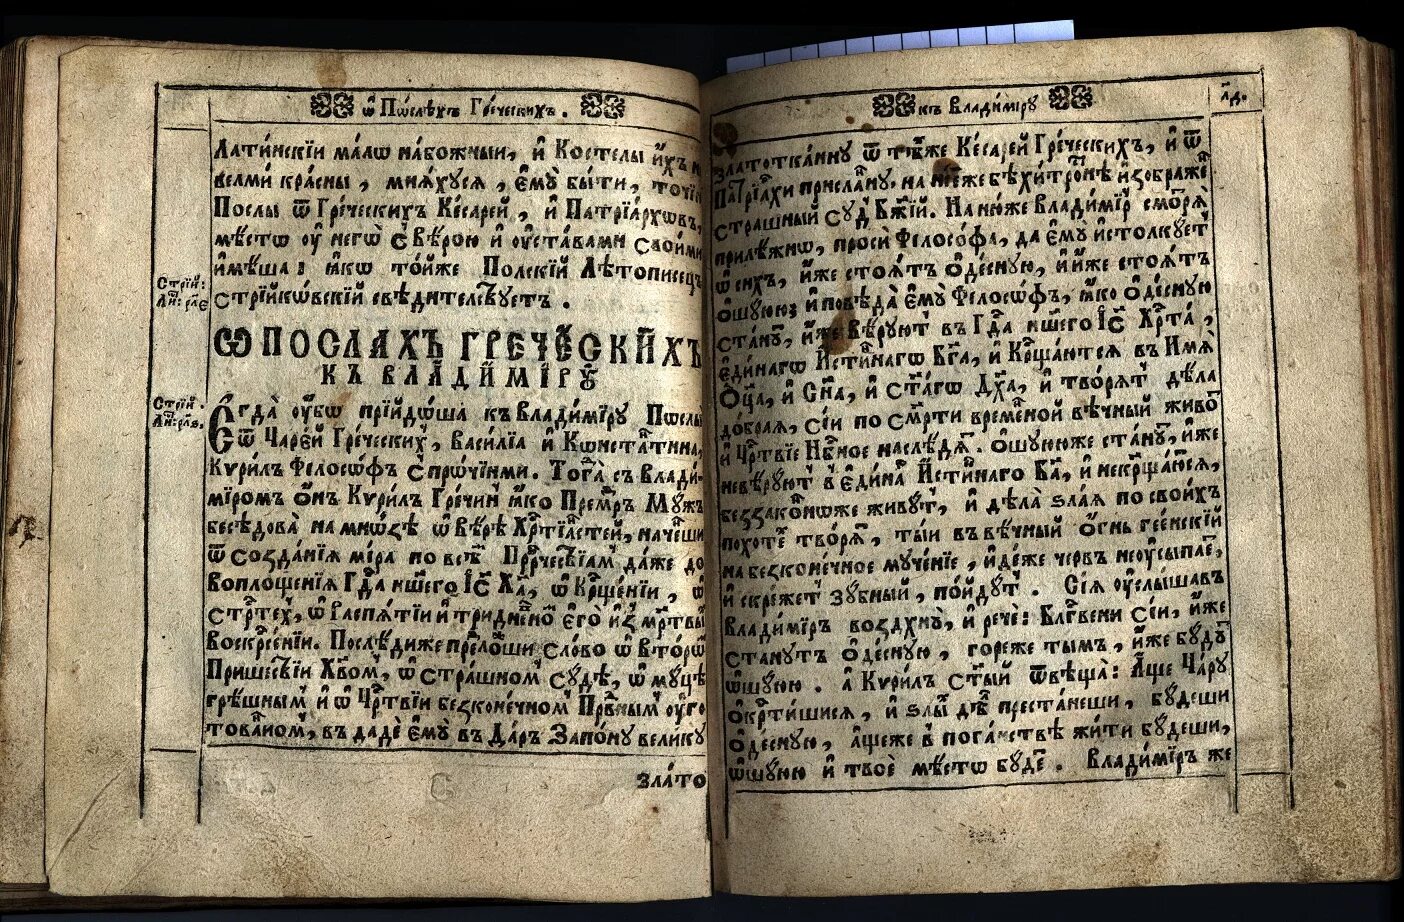 ѿ Пѡслѣхъ Гре́ческихъ.
Лати́нскїи ма́лѡ набо́жныи, и҆ Костелы и҆́хъ н
велми кра́сны, мнѧ́хуся, є҆мꙋ̀ бы́ти, точїю
Послы ѿ Гре́ческихъ Ке́сарей, и҆ Патрїа́рхѡвъ,
мѣ́стѡ ꙋ҆ негѡ̀ с̾ Вѣ́рою и҆ ꙋ҆ста́вами свои́ми
и҆мѣ́ша: ꙗ҆́кѡ то́йже По́лскїй Лѣтописецъ
Стрїйко́вскїй свѣди́телствꙋетъ.
Стрїй:
Ли: рл҃є
Ѡ ПОСЛАХЪ ГРЕ́ЧЕСКИХЪ
КЪ ВЛАДИ́МІРꙊ
Стрїй.
Ли: рл҃в.
Є҆гда̀ ꙋ҆́бѡ прїйдо́ша къ Влади́мїрꙋ Пѡслы
ѿ Царе́й Гре́ческихъ, Васи́лїа и҆ Кѡнстанті́на,
Кѷри́лъ Фелосо́фъ с̾ про́чїими. Тогда̀ съ Влади́-
мїромъ О҆́нъ Кѷри́лъ Гре́чинъ ꙗ҆́ко Премꙋ́дръ Мꙋжъ
бесѣ́дова на мно́зѣ ѡ҆ Вѣ́рѣ Хрⷭ҇тїа́нстей, наче́нши
ѿ созда́нїя ми́ра по всѣ́мъ Прⷪ҇ро́чествїамъ да́же до
воплоще́нїя Гдⷭ҇а нш҃его І҆с҃ Хⷭ҇а, ѡ҆ Крⷳ҇ще́нїи, ѡ҆
стрⷭ҇те́хъ, ѡ҆ Распѧ́тїи и҆ тридне́вномъ є҆гѡ̀ и҆з ме́ртвы
Воскрⷭ҇е́нїи. Послѣ́диже предложи́ сло́во ѡ҆ вторѡ́мъ
Прише́ствїи Хв҃омъ, ѡ҆ стра́шномъ сꙋ́дѣ, ѡ҆ мꙋ́цѣ
грѣ́шнымъ и҆ ѡ҆ Црⷭ҇твїи безконе́чномъ Пра́веднымъ ꙋ҆го
това́нномъ, въ дадѐ є҆мꙋ̀ въ Да́ръ Запо́нꙋ вели́кꙋ
зла́то
къ Влади́мїрꙋ
л҃д.
златотка́ннꙋ ѿ тѣ́хже Ке́сарей Гре́ческихъ, и҆ ѿ
Патрїа́рхи присла́ннꙋ. на не́йже бѣ хитро́стнѣ и҆зображе́нъ
стра́шный сꙋ́дъ Бж҃їй. На ню́же Влади́мїръ смотрѧ̀
прилѣ́жнѡ, проси̇̀ Фелосо́фа, да є҆мꙋ̀ и҆столкꙋ́етъ
ѡ҆ си́хъ, и҆́же стоѧ́тъ ѡ҆деснꙋ́ю, и҆ и҆́же стоѧ́тъ
ѡ҆шꙋ́юю: и҆ повѣ́да є҆мꙋ̀ Фелосо́фъ, ꙗ҆́ко ѡ҆деснꙋ́ю
ста́нꙋтъ, и҆́же вѣ́рꙋютъ въ Гдⷭ҇а нш҃его І҆с҃ Хрⷭ҇та̀,
є҆ди́нагѡ И҆́стиннагѡ Бг҃а, и҆ Крⷳ҇ща́ются въ И҆́мѧ
Ѻ҆ц҃а̀, и҆ Сн҃а, и҆ ст҃а́гѡ Дх҃а, и҆ творѧ́тъ дѣ́ла
до́браѧ, сі́и по сме́рти вре́менной вѣ́чный живо́тъ
и҆ Црⷭ҇твїе Нбⷭ҇ное наслѣ́дѧтъ. Ѡ҆шꙋ́ююже ста́нꙋтъ, и҆́же
невѣ́рꙋютъ в̾ є҆ди́наго И҆́стиннаго Бг҃а, и҆ некреща́ютсѧ,
беззако́ннѡже живꙋ́тъ, и҆ дѣ́ла ѕла́ѧ по свои́хъ
похо́техъ творѧ́тъ, ты́и въ вѣ́чный ѻ҆́гнь гее́нскїй
на безконе́чное мꙋче́нїе, и҆дѣ́же че́рвь неꙋ҆сыпа́емый,
и҆ скре́жетъ зꙋ́бный, по́йдꙋтъ. Сїѧ̀ ꙋ҆слы́шавъ
Влади́мїръ воздхнꙋ̀, и҆ речѐ: Блг҃ве́ни сі́и, и҆́же
ста́нꙋтъ ѡ҆деснꙋ́ю, го́реже ты́мъ, и҆́же бꙋ́дꙋтъ
ѡ҆шꙋ́юю. а҆ Кѷри́лъ ст҃ы́й ѿвѣща̀: А҆́ще Ца́рꙋ
ѡ҆крⷭ҇ти́шисѧ, и҆ ѕлы́хъ дѣ́лъ преста́неши, бꙋ́деши
ѡ҆деснꙋ́ю, а҆́щеже в̾ пога́нствѣ жи́ти бꙋ́деши,
ѡ҆шꙋ́юю и҆ твоѐ мѣ́сто бꙋ́детъ. Влади́мїръ же